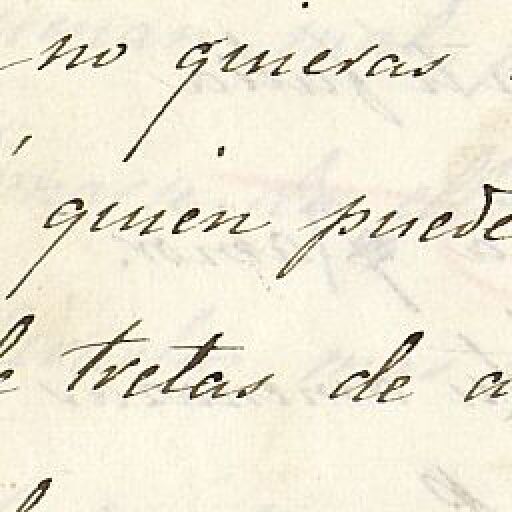 no quieras
quien puede
tretas de a